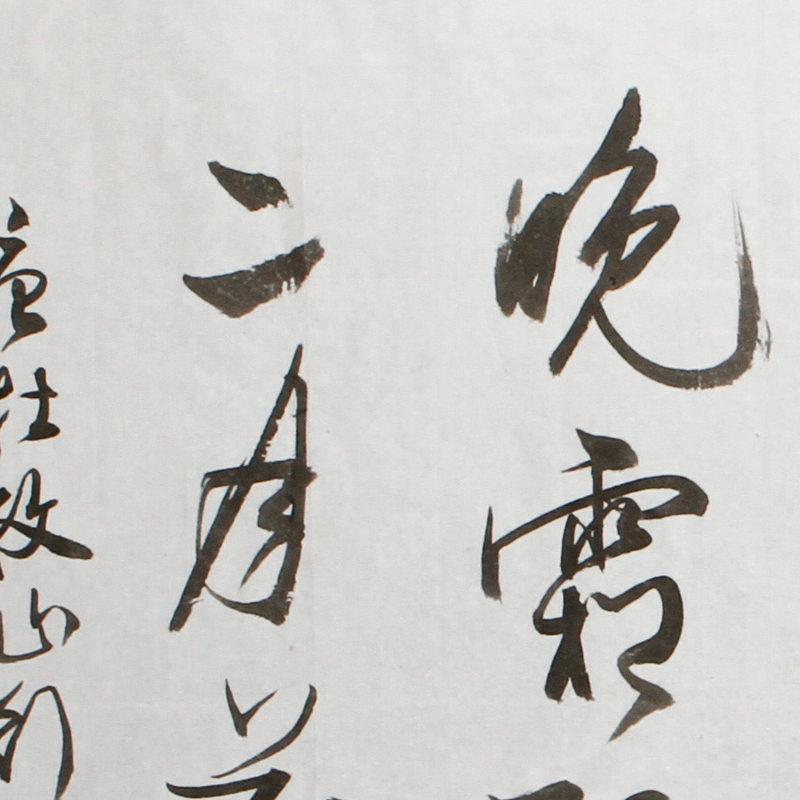 晚霜
二月
杜牧山行